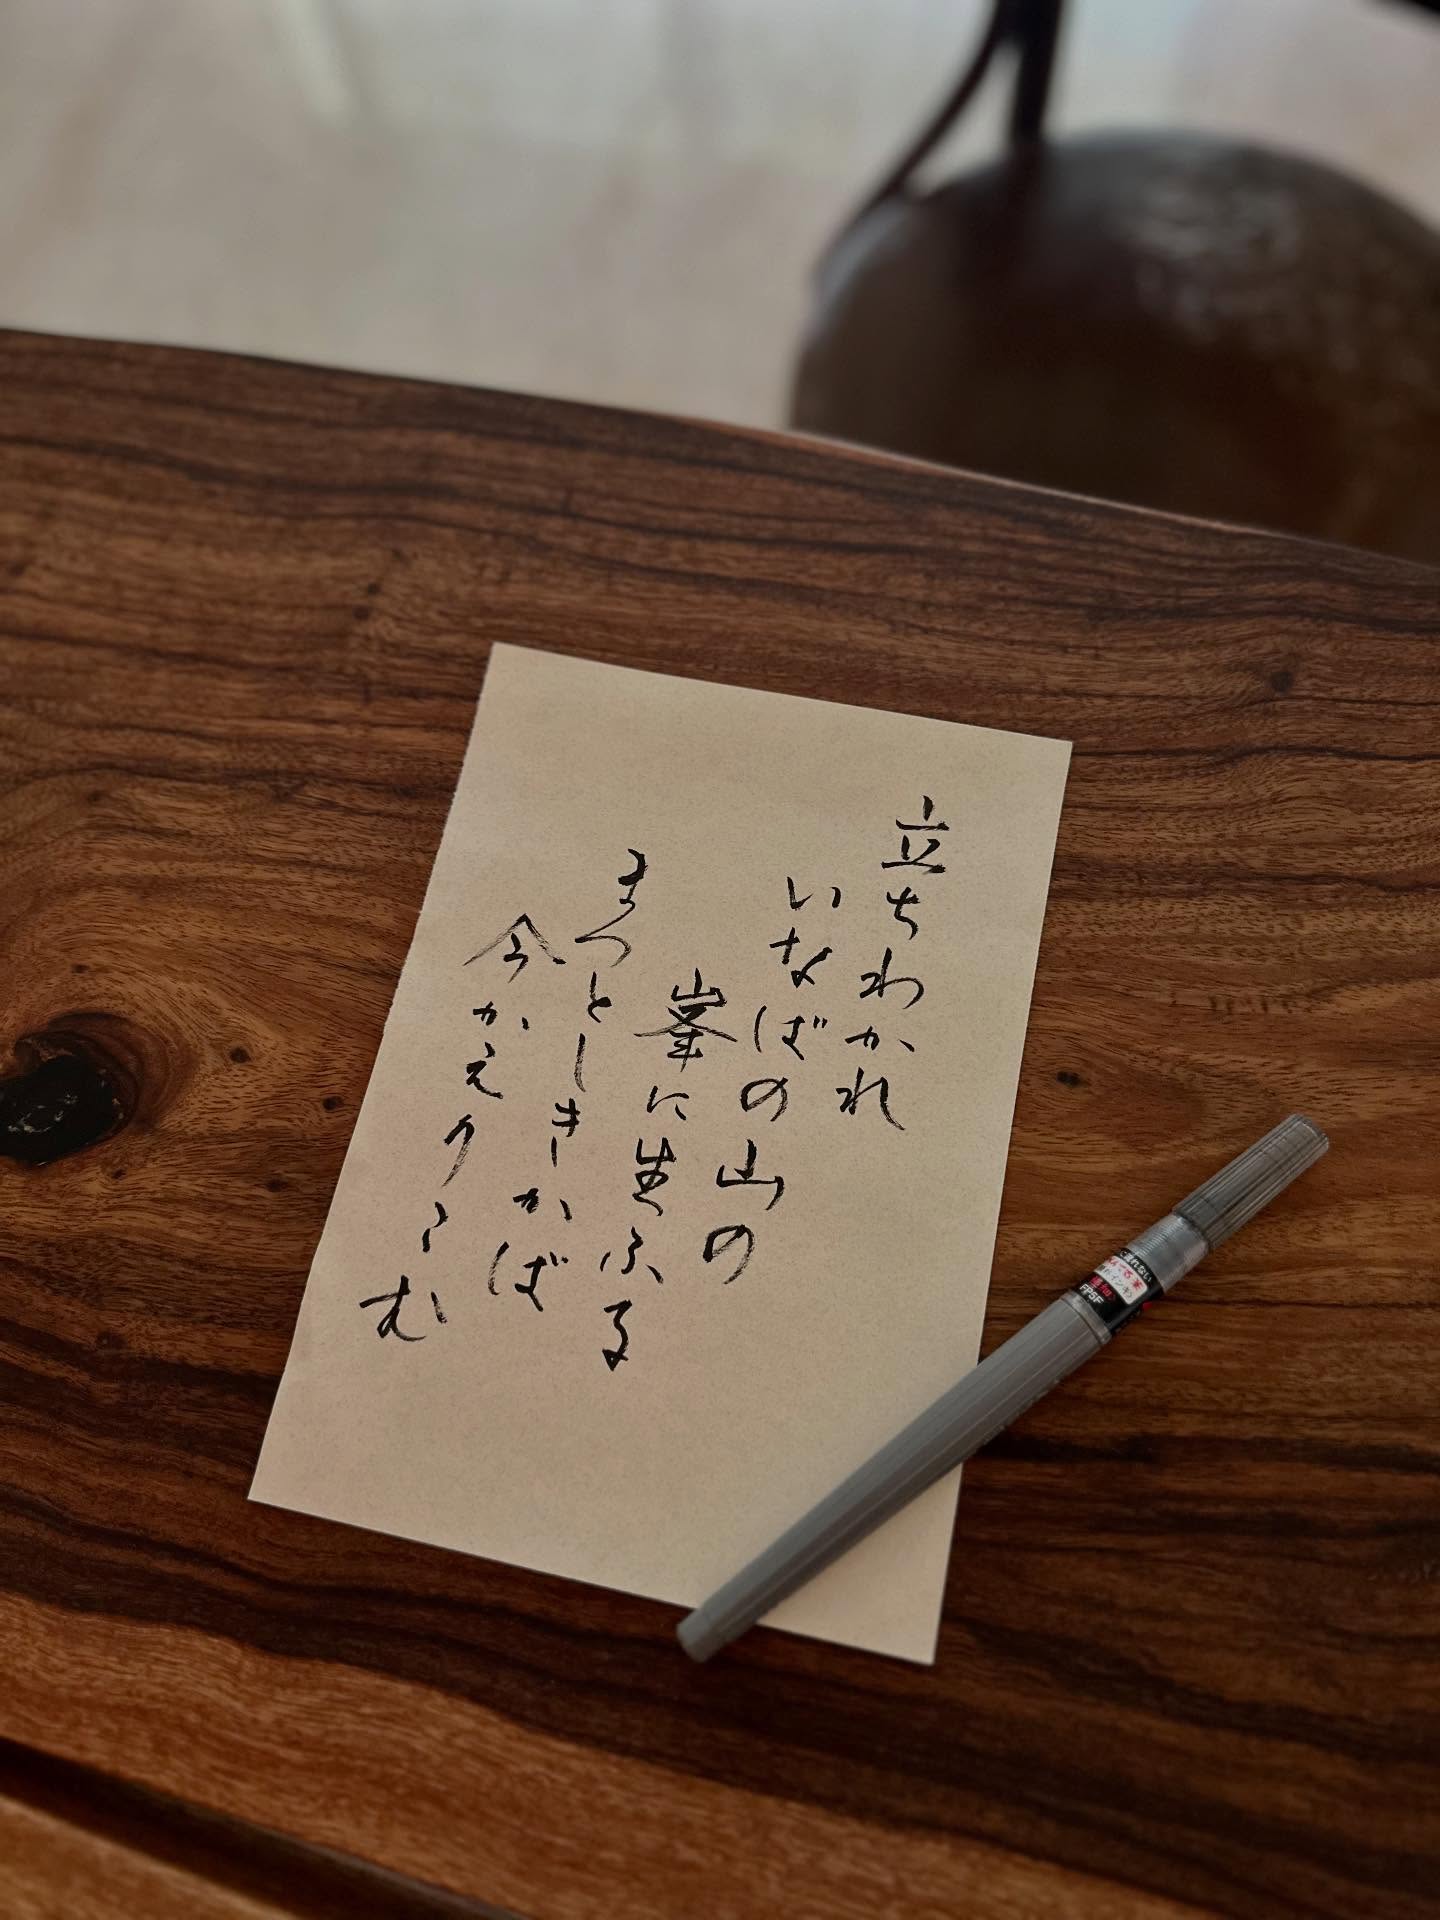 立ちわかれ
いなばの山の
峯に生ふる
まつとしきかば
今かえりこむ
FP5F